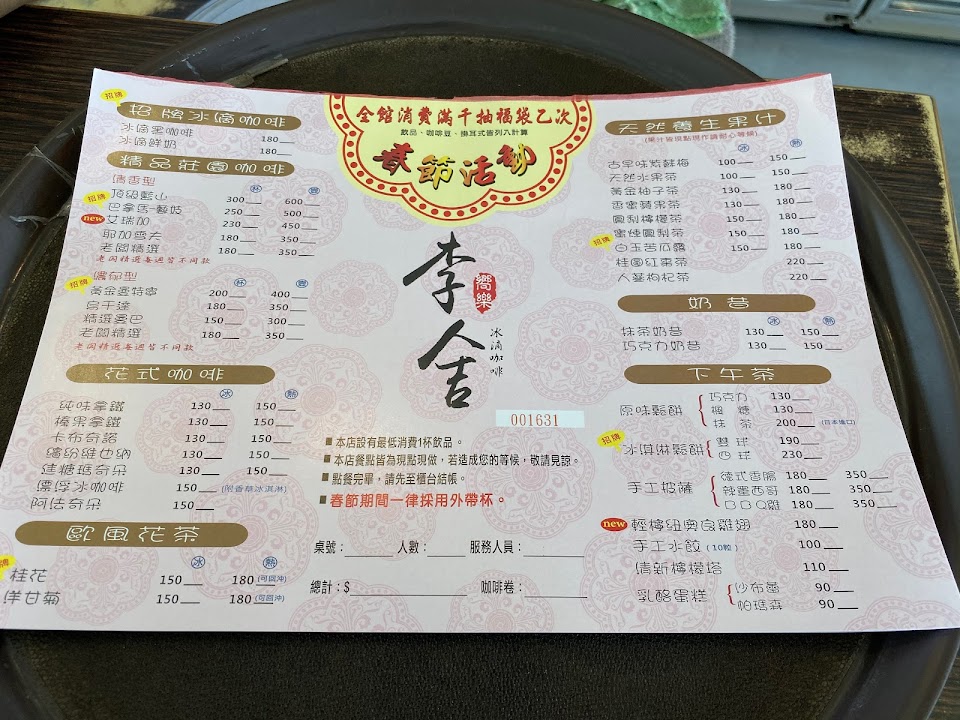 招牌
招牌冰滴咖啡
冰滴黑咖啡 180
冰滴鮮奶 180
精品莊園咖啡
清香型 杯 壺
招牌 頂級藍山 300 600
巴拿馬-藝妓 250 500
new 艾瑞加 230 450
耶加雪夫 180 350
老闆精選 180 350
老闆精選每週皆不同款
濃郁型 杯 壺
招牌 黃金曼特寧 200 400
烏干達 180 350
精選曼巴 150 300
老闆精選 180 350
老闆精選每週皆不同款
花式咖啡
冰 熱
純味拿鐵 130 150
榛果拿鐵 130 150
卡布奇諾 130 150
繽紛維也納 130 150
焦糖瑪奇朵 130 150
漂浮冰咖啡 150 (附香草冰淇淋)
阿法奇朵 150
歐風花茶
冰 熱
桂花 150 180 (可回沖)
洋甘菊 150 180 (可回沖)
全館消費滿千抽福袋乙次
飲品、咖啡豆、掛耳式皆列入計算
春節活動
李舍
嚮樂
冰滴咖啡
001631
■本店設有最低消費1杯飲品。
■本店餐點皆為現點現做，若造成您的等候，敬請見諒。
■點餐完畢，請先至櫃台結帳。
■春節期間一律採用外帶杯。
桌號： 人數： 服務人員：
總計：$ 咖啡卷：
天然養生果汁
(果汁皆現點現作請耐心等候)
冰 熱
古早味紫蘇梅 100 150
天然水果茶 100 150
黃金柚子茶 130 180
香蜜蘋果茶 130 180
鳳梨檸檬茶 150 180
蜜燉鳳梨茶 150 180
招牌 白玉苦瓜露 150 180
桂圓紅棗茶 220
人蔘枸杞茶 220
奶昔
冰 熱
抹茶奶昔 130 150
巧克力奶昔 130 150
下午茶
原味鬆餅 巧克力 130
楓糖 130
抹茶 200 (日本進口)
招牌 冰淇淋鬆餅 雙球 190
四球 230
手工披薩 德式香腸 180 350
辣墨西哥 180 350
BBQ雞 180 350
new 輕檸紐奧良雞翅 180
手工水餃 (10粒) 100
清新檸檬塔 110
乳酪蛋糕 沙布蕾 90
帕瑪森 90